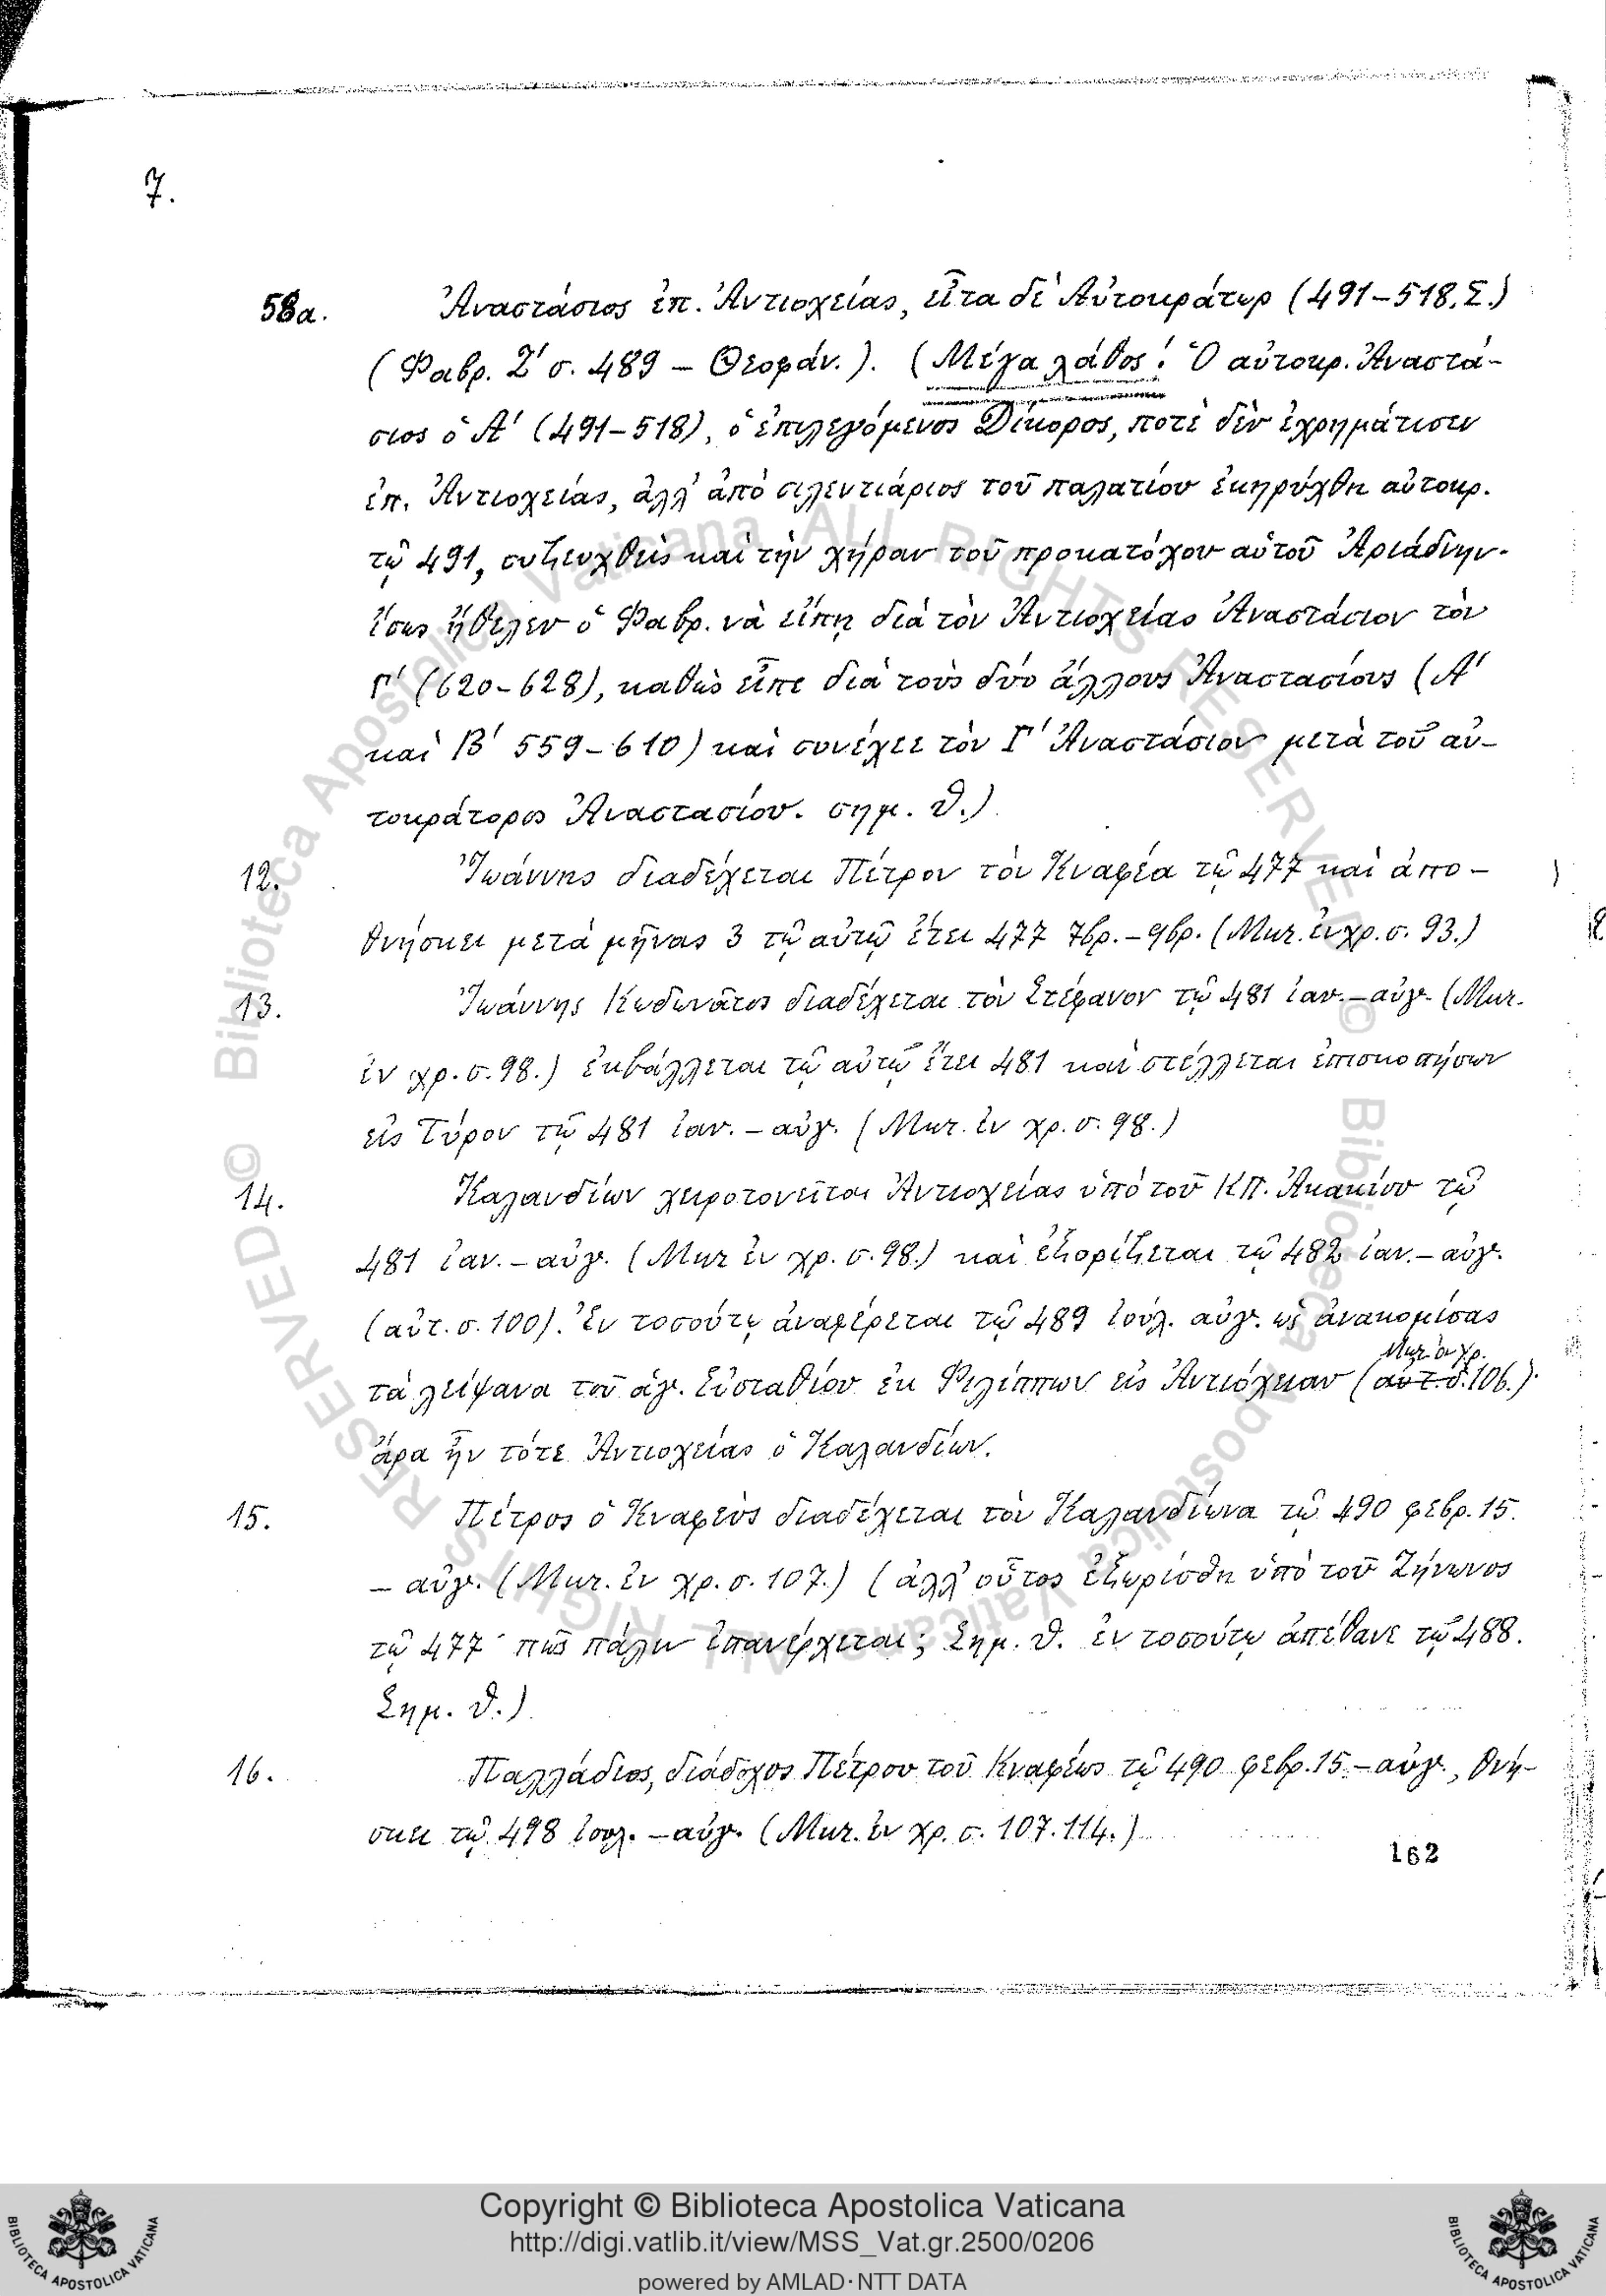 7.
58a. Ἀναστάσιος ἐπ. Ἀντιοχείας, εἶτα δὲ Αὐτοκράτωρ (491–518. Σ.)
(Φαβρ. Ζ' σ. 489 – Θεοφάν.). (Μέγα λάθος! Ὁ αὐτοκρ. Ἀναστά-
σιος ὁ Α' (491–518), ὁ ἐπιλεγόμενος Δίκορος, ποτὲ δὲν ἐχρημάτισεν
ἐπ. Ἀντιοχείας, ἀλλ' ἀπὸ σιλεντιάριος τοῦ παλατίου ἐκηρύχθη αὐτοκρ.
τῷ 491, συζευχθεὶς καὶ τὴν χήραν τοῦ προκατόχου αὐτοῦ Ἀριάδνην.
ἴσως ἤθελεν ὁ Φαβρ. νὰ εἴπῃ διὰ τὸν Ἀντιοχείας Ἀναστάσιον τὸν
Γ' (620–628), καθὼς εἶπε διὰ τοὺς δύο ἄλλους Ἀναστασίους (Α'
καὶ Β' 559–610) καὶ συνέχεε τὸν Γ' Ἀναστάσιον μετὰ τοῦ αὐ-
τοκράτορος Ἀναστασίου. σημ. θ.)
12. Ἰωάννης διαδέχεται Πέτρον τὸν Κναφέα τῷ 477 καὶ ἀπο-
θνήσκει μετὰ μῆνας 3 τῷ αὐτῷ ἔτει 477 7βρ.–9βρ. (Μυτ. ἐν χρ. σ. 93.)
13. Ἰωάννης Κωδωνᾶτος διαδέχεται τὸν Στέφανον τῷ 481 ἰαν.–αὐγ. (Μυτ.
ἐν χρ. σ. 98.) ἐκβάλλεται τῷ αὐτῷ ἔτει 481 καὶ στέλλεται ἐπισκοπήσων
εἰς Τύρον τῷ 481 ἰαν.–αὐγ. (Μυτ. ἐν χρ. σ. 98.)
14. Καλανδίων χειροτονεῖται Ἀντιοχείας ὑπὸ τοῦ ΚΠ. Ἀκακίου τῷ
481 ἰαν.–αὐγ. (Μυτ ἐν χρ. σ. 98.) καὶ ἐξορίζεται τῷ 482 ἰαν.–αὐγ.
(αὐτ. σ. 100). Ἐν τοσούτῳ ἀναφέρεται τῷ 489 ἰούλ. αὐγ. ὡς ἀνακομίσας
Μυτ. ἐν χρ.
τὰ λείψανα τοῦ ἁγ. Εὐσταθίου ἐκ Φιλίππων εἰς Ἀντιόχειαν (αὐτ. σ. 106.)·
ἄρα ἦν τότε Ἀντιοχείας ὁ Καλανδίων.
15. Πέτρος ὁ Κναφεὺς διαδέχεται τὸν Καλανδίωνα τῷ 490 φεβρ. 15.
– αὐγ. (Μυτ. ἐν χρ. σ. 107.) (ἀλλ' οὗτος ἐξωρίσθη ὑπὸ τοῦ Ζήνωνος
τῷ 477· πῶς πάλιν ἐπανέρχεται; Σημ. θ. ἐν τοσούτῳ ἀπέθανε τῷ 488.
Σημ. θ.)
16. Παλλάδιος, διάδοχος Πέτρου τοῦ Κναφέως τῷ 490 φεβρ. 15.–αὐγ., θνή-
σκει τῷ 498 ἰουλ.–αὐγ. (Μυτ. ἐν χρ. σ. 107. 114.)
162
© Biblioteca Apostolica Vaticana ALL RIGHTS RESERVED
© Biblioteca Apostolica Vaticana ALL RIGHTS RESERVED
Copyright © Biblioteca Apostolica Vaticana
http://digi.vatlib.it/view/MSS_Vat.gr.2500/0206
powered by AMLAD·NTT DATA
BIBLIOTECA APOSTOLICA VATICANA
BIBLIOTECA APOSTOLICA VATICANA